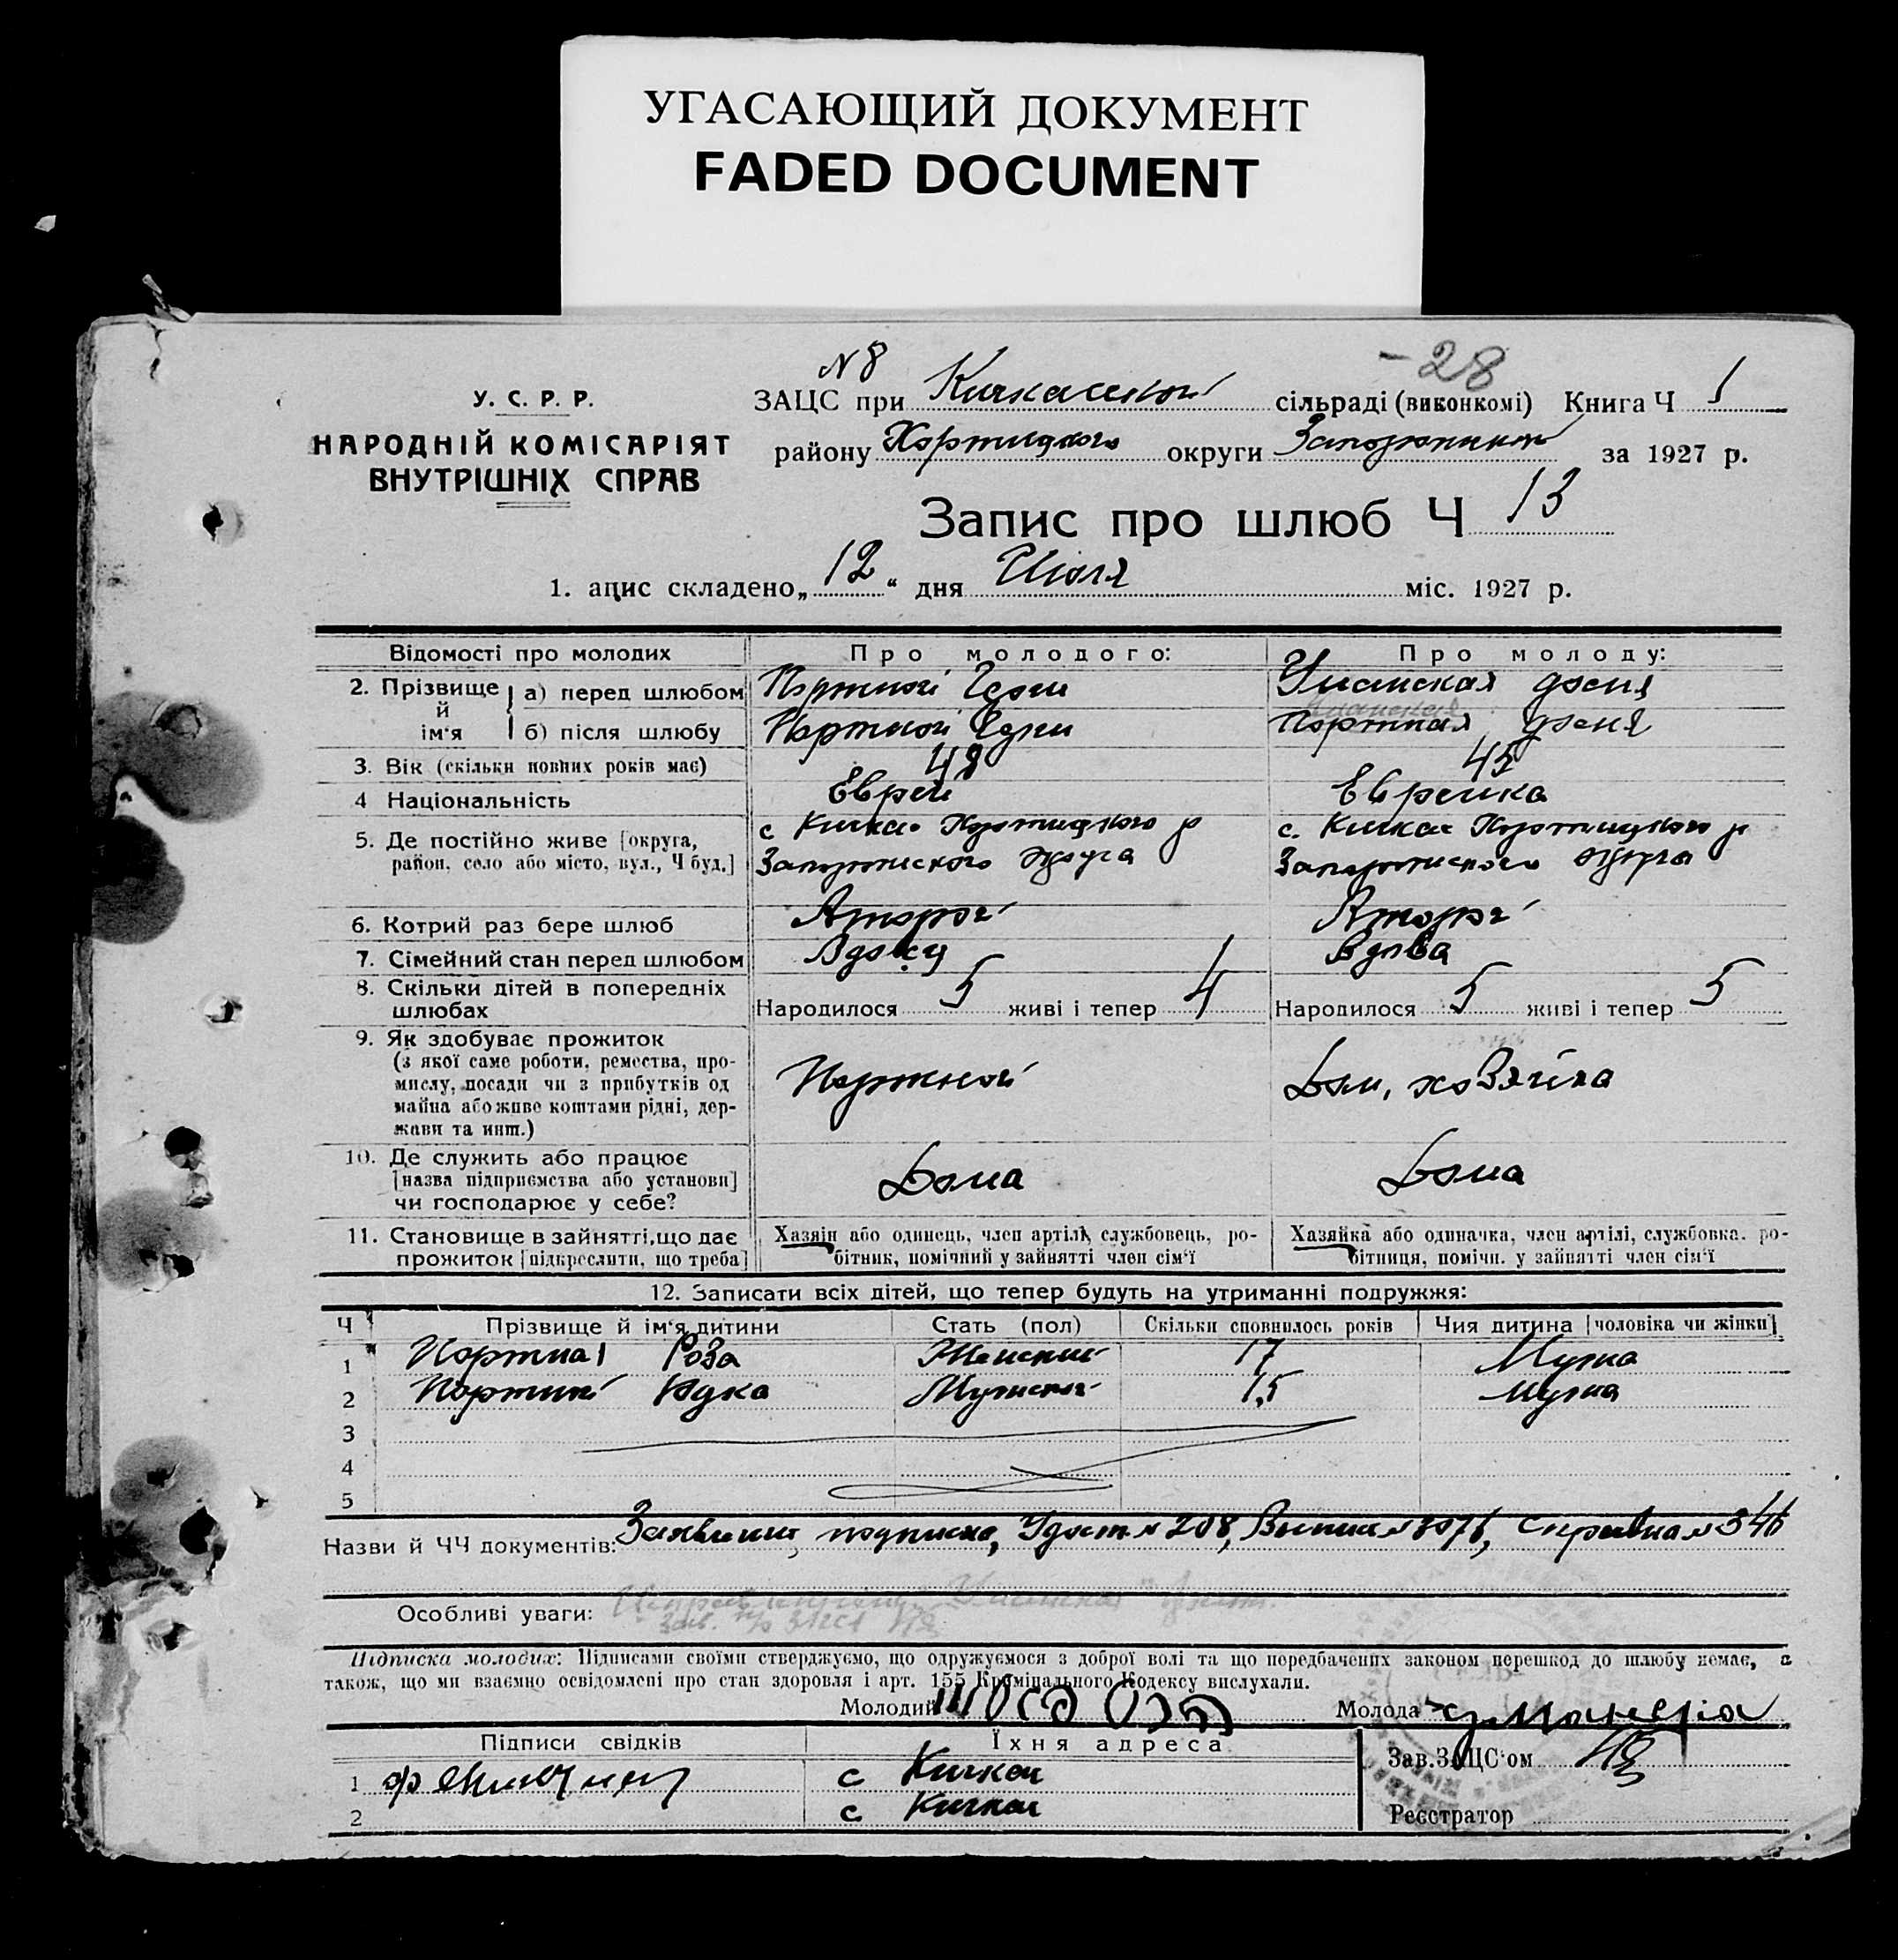 УГАСАЮЩИЙ ДОКУМЕНТ
FADED DOCUMENT
N 8
-28
У. С. Р. Р.
НАРОДНІЙ КОМІСАРІЯТ
ВНУТРІШНІХ СПРАВ
ЗАЦС при Кичкасской сільраді (виконкомі) Книга Ч 1
району Хортицкого округи за 1927 р.
Запис про шлюб Ч 13
1. апис складено „12“ дня Июля міс. 1927 р.
Відомості про молодих Про молодого: Про молоду:
2. Прізвище й ім'я а) перед шлюбом Портной Уманская Фаня
б) після шлюбу Портной Портная Фаня
3. Вік (скільки повних років має) 48 45
4 Національність Еврей Еврейка
5. Де постійно живе [округа, с Кичкас Хортицкого р с. Кичкас Хортицкого р
район, село або місто, вул., Ч буд.] Запорожского округа Запорожского округа
6. Котрий раз бере шлюб Второй Второй
7. Сімейний стан перед шлюбом Вдовец Вдова
8. Скільки дітей в попередніх
шлюбах Народилося 5 живі і тепер 4 Народилося 5 живі і тепер 5
9. Як здобуває прожиток
(з якої саме роботи, ремества, про-
мислу, посади чи з прибутків од Портной Дом, хозяйка
майна або живе коштами рідні, дер-
жави та инш.)
10. Де служить або працює
[назва підприємства або установи] Дома Дома
чи господарює у себе?
11. Становище в зайнятті, що дає Хазяін або одинець, член артілі, службовець, ро- Хазяйка або одиначка, член артілі, службовка, ро-
прожиток [підкреслити, що треба] бітник, помічний у зайнятті член сім'ї бітниця, помічн. у зайнятті член сім'ї
12. Записати всіх дітей, що тепер будуть на утриманні подружжя:
Ч Прізвище й ім'я дитини Стать (пол) Скільки сповнилось років Чия дитина [чоловіка чи жінки]
1 Портная Роза Женский 17 Мужа
2 Портной Юдка Мужской 15 Мужа
3
4
5
Назви й ЧЧ документів: подписка, Удост. N 208, Справка N 346
Особливі уваги:
Зав. ЗАГСА
Підписка молодих: Підписами своїми стверджуємо, що одружуємося з доброї волі та що передбачених законом перешкод до шлюбу немає, а
також, що ми взаємно освідомлені про стан здоровля і арт. 155 Кримінального Кодексу вислухали.
Молодий Молода
Підписи свідків Їхня адреса Зав. ЗАЦС'ом
1 с Кичкас
2 с Кичкас Реєстратор